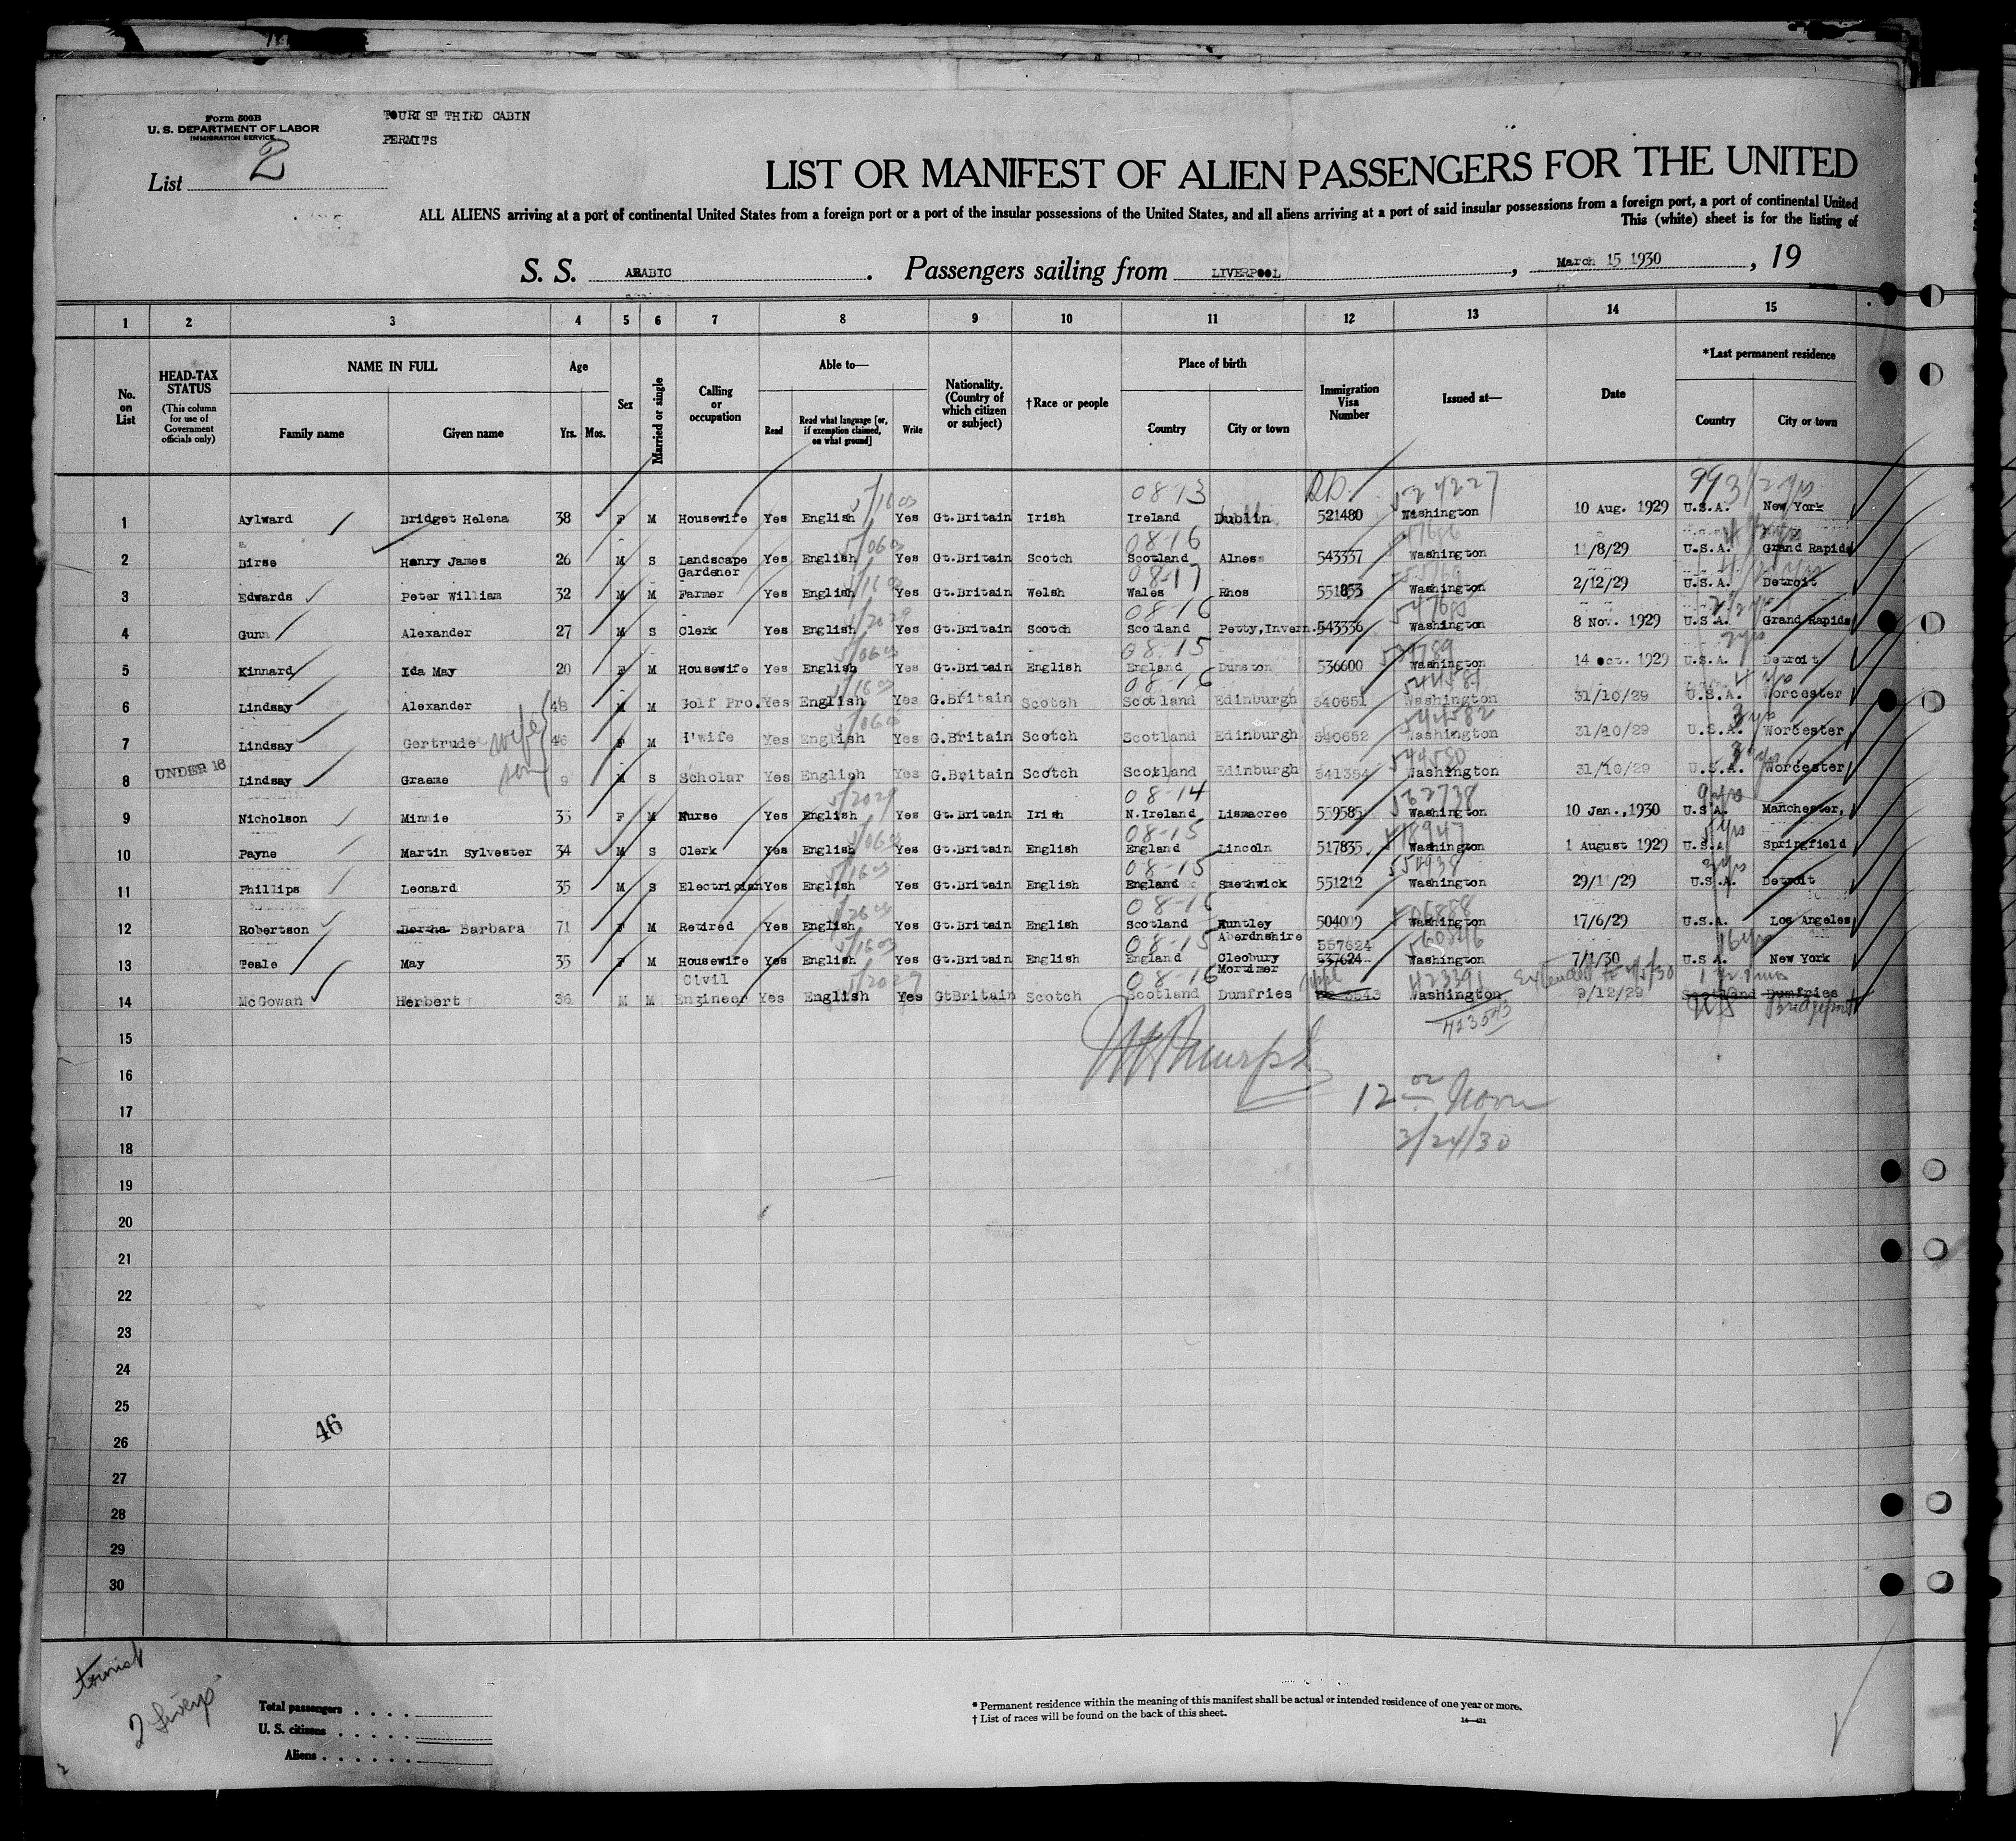 Form 500B
U. S. DEPARTMENT OF LABOR
IMMIGRATION SERVICE
TOURIST THIRD CABIN
PERMITS
List 2
LIST OR MANIFEST OF ALIEN PASSENGERS FOR THE UNITED
ALL ALIENS arriving at a port of continental United States from a foreign port or a port of the insular possessions of the United States, and all aliens arriving at a port of said insular possessions from a foreign port, a port of continental United
This (white) sheet is for the listing of
S. S. ARABIC . Passengers sailing from LIVERPOOL , March 15 1930 , 19
1 2 3 4 5 6 7 8 9 10 11 12 13 14 15
No. on List
HEAD-TAX STATUS
(This column for use of Government officials only)
NAME IN FULL
Family name Given name
Age
Yrs. Mos.
Sex
Married or single
Calling or occupation
Able to—
Read Read what language [or, if exemption claimed, on what ground] Write
Nationality. (Country of which citizen or subject)
†Race or people
Place of birth
Country City or town
Immigration Visa Number
Issued at—
Date
*Last permanent residence
Country City or town
5/1603 08-13 524227 3 1/2 yrs
1 Aylward Bridget Helena 38 F M Housewife Yes English Yes Gt.Britain Irish Ireland Dublin 521480 Washington 10 Aug. 1929 U.S.A. New York
08-16
2 Birse Henry James 26 M S Landscape Gardener Yes English Yes Gt.Britain Scotch Scotland Alness 543337 Washington 11/8/29 U.S.A. Grand Rapids
08-17
3 Edwards Peter William 32 M M Farmer Yes English Yes Gt.Britain Welsh Wales Rhos 551853 Washington 2/12/29 U.S.A. Detroit
08-16
4 Gunn Alexander 27 M S Clerk Yes English Yes Gt.Britain Scotch Scotland Petty,Invern. 543336 Washington 8 Nov. 1929 U.S.A. Grand Rapids
08-15 2yrs
5 Kinnard Ida May 20 F M Housewife Yes English Yes Gt.Britain English England Dunston 536600 Washington 14 oct. 1929 U.S.A. Detroit
08-16 544581 4 yrs
6 Lindsay Alexander 48 M M Golf Pro. Yes English Yes G.Britain Scotch Scotland Edinburgh 540651 Washington 31/10/29 U.S.A. Worcester
544582 3 yrs
7 Lindsay Gertrude wife 46 F M H'wife Yes English Yes G.Britain Scotch Scotland Edinburgh 540652 Washington 31/10/29 U.S.A. Worcester
544580
UNDER 16
8 Lindsay Graeme son 9 M S Scholar Yes English Yes G.Britain Scotch Scotland Edinburgh 541354 Washington 31/10/29 U.S.A. Worcester
5/2029 08-14 562738 9yrs
9 Nicholson Minnie 35 F M Nurse Yes English Yes Gt.Britain Irish N.Ireland Lismacree 559585 Washington 10 Jan.,1930 U.S.A. Manchester,
08-15 5 yrs
10 Payne Martin Sylvester 34 M S Clerk Yes English Yes Gt.Britain English England Lincoln 517835 Washington 1 August 1929 U.S.A Springfield
5/1603 08-15 554938
11 Phillips Leonard 35 M S Electrician Yes English Yes Gt.Britain English England Smethwick 551212 Washington 29/11/29 U.S.A. Detroit
08-16
12 Robertson Bertha Barbara 71 F M Retired Yes English Yes Gt.Britain English Scotland Huntley Aberdnshire 504009 Washington 17/6/29 U.S.A. Los Angeles
5/1603 08-15 557624 16yrs
13 Teale May 35 F M Housewife Yes English Yes Gt.Britain English England Cleobury Mortimer 537624 Washington 7/1/30 U.S.A. New York
5/2029 08-16 423391
14 McGowan Herbert 36 M M Civil Engineer Yes English Yes GtBritain Scotch Scotland Dumfries Washington 9/12/29 Scotland Dumfries
423543 US Bridgeport
15
16
17 12 00 Noon
18 3/24/30
19
20
21
22
23
24
25
46
26
27
28
29
30
tourist
Total passengers
U. S. citizens
Aliens
* Permanent residence within the meaning of this manifest shall be actual or intended residence of one year or more.
† List of races will be found on the back of this sheet.